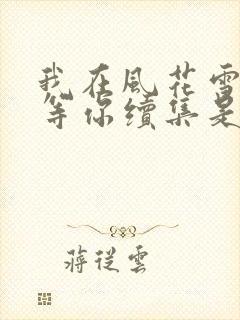 我在風花雪
等你續集是
蔣從雲